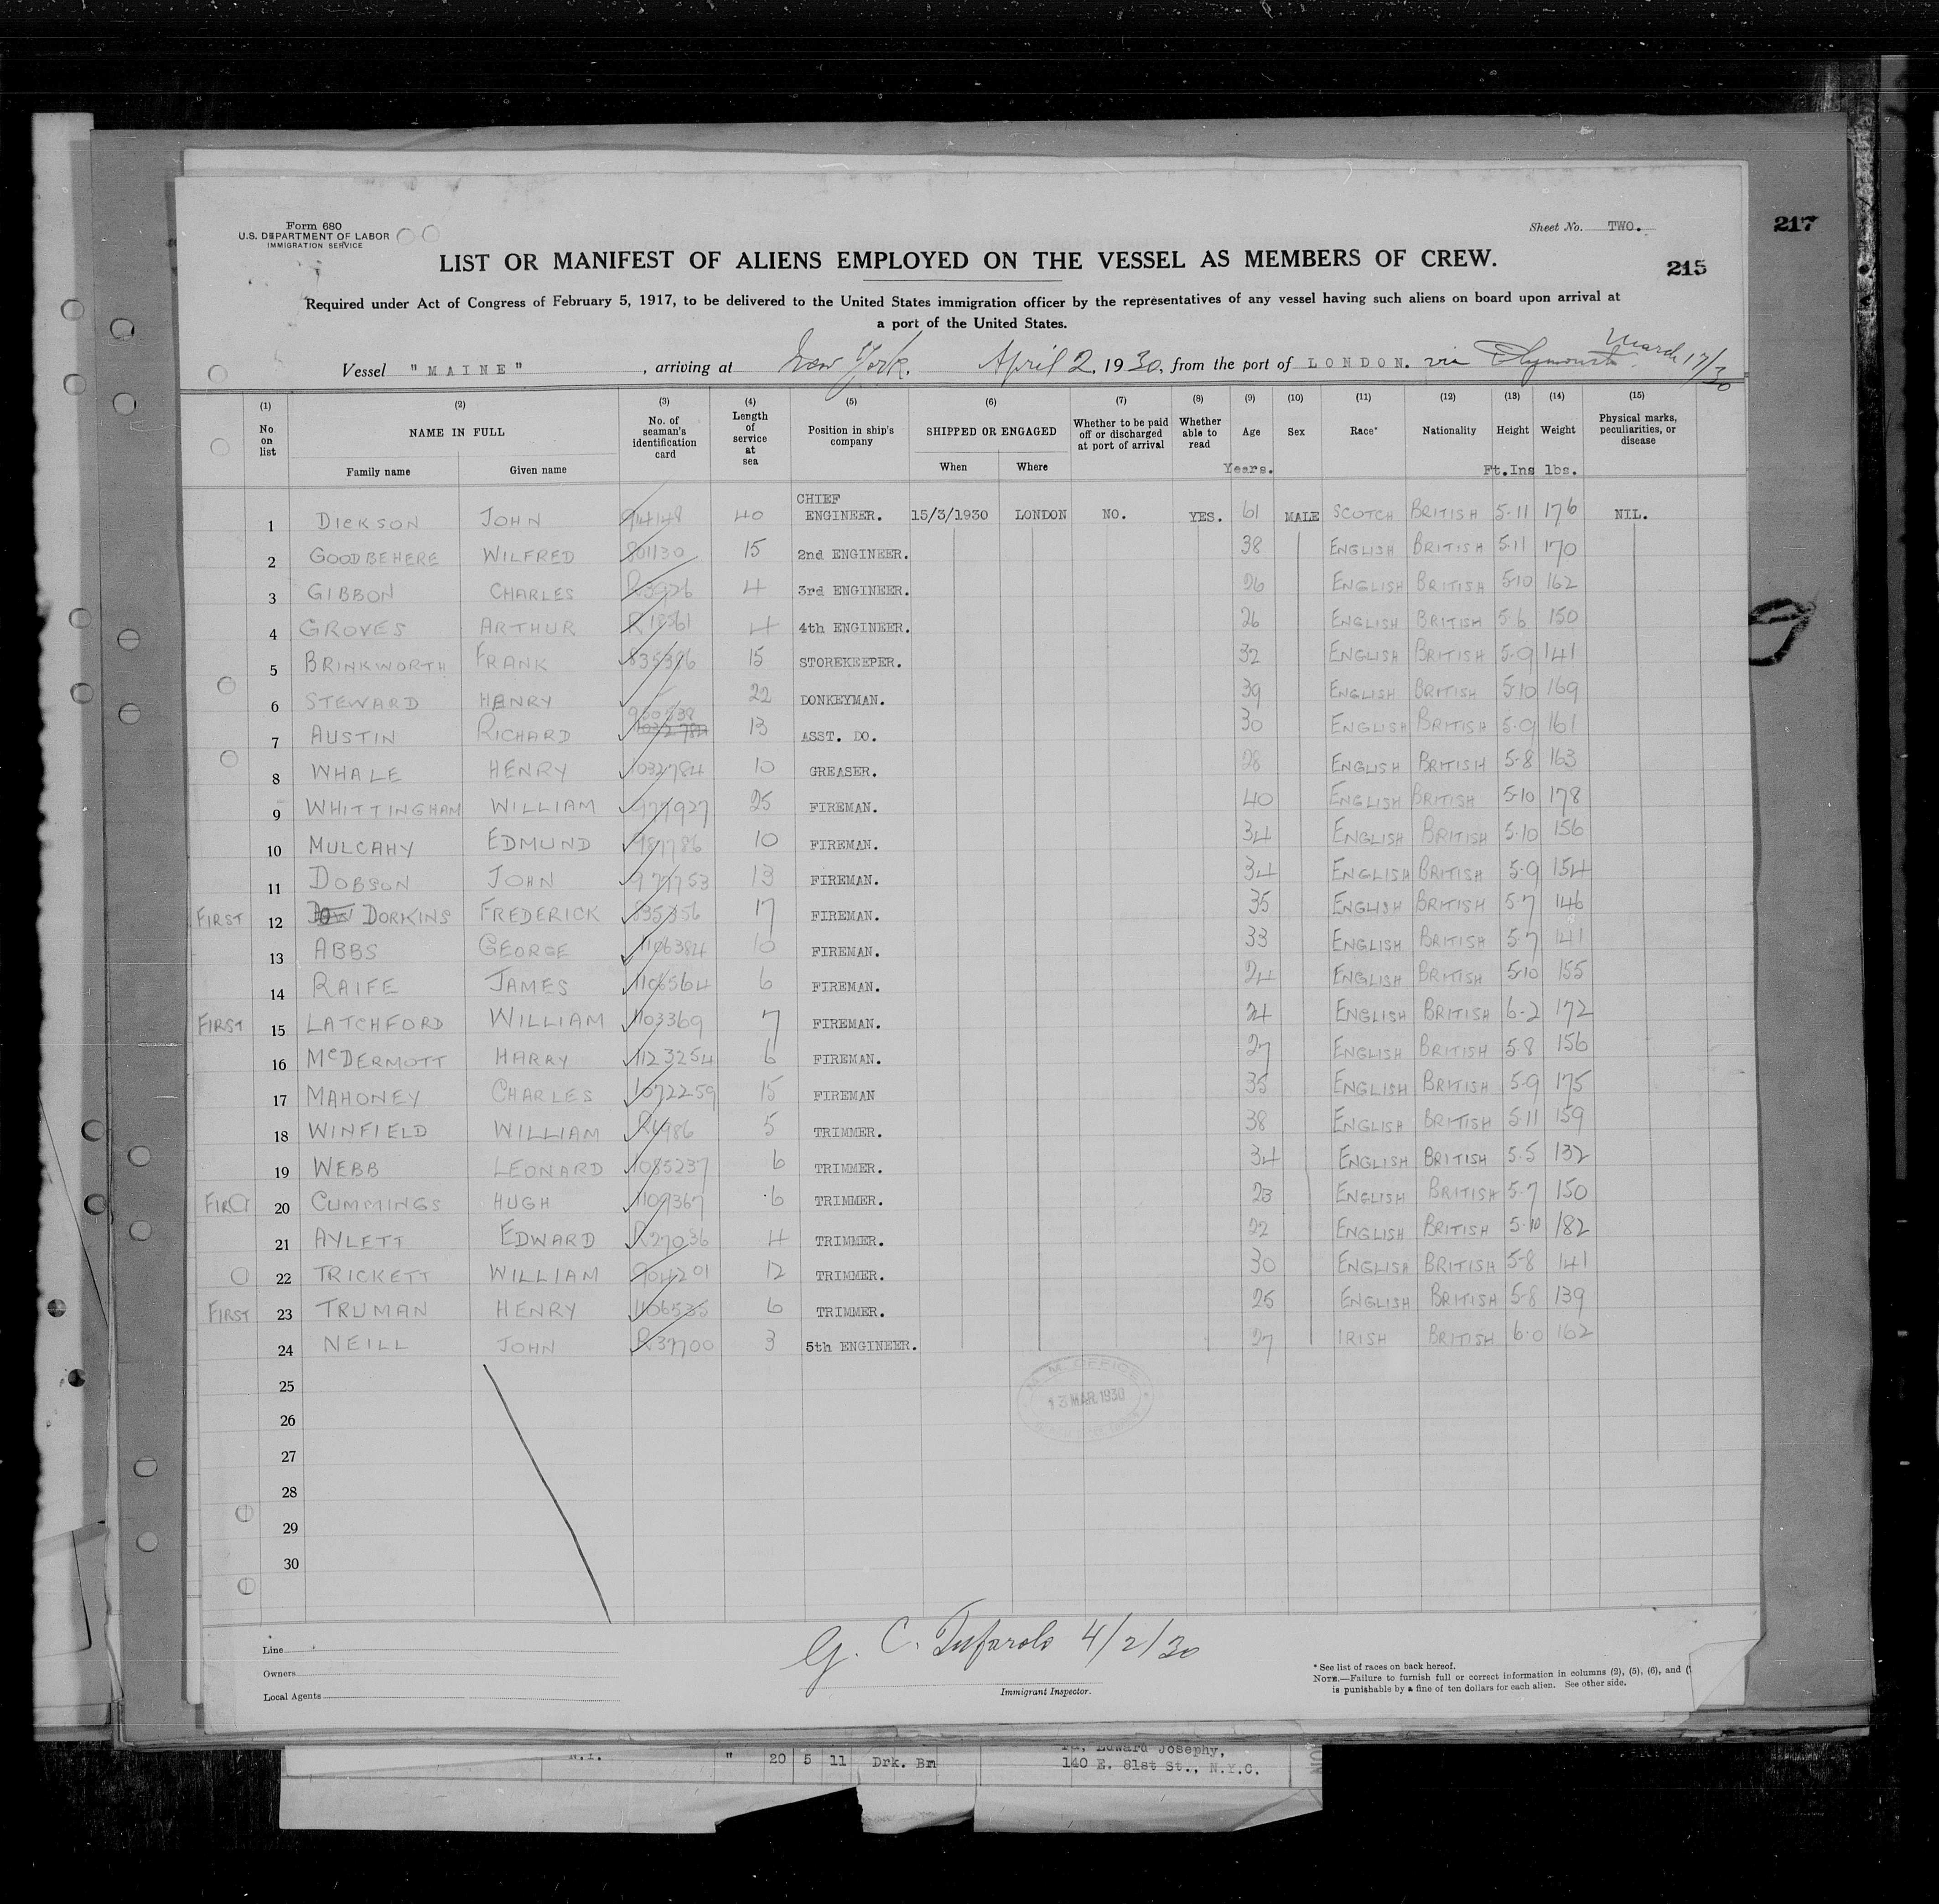 Form 680
U.S. DEPARTMENT OF LABOR
IMMIGRATION SERVICE
Sheet No. TWO.
217
215
LIST OR MANIFEST OF ALIENS EMPLOYED ON THE VESSEL AS MEMBERS OF CREW.
Required under Act of Congress of February 5, 1917, to be delivered to the United States immigration officer by the representatives of any vessel having such aliens on board upon arrival at
a port of the United States.
Vessel "MAINE", arriving at New York. April 2, 1930, from the port of LONDON. via Plymouth. March 17/30
(1) (2) (3) (4) (5) (6) (7) (8) (9) (10) (11) (12) (13) (14) (15)
No. on list NAME IN FULL No. of seaman's identification card Length of service at sea Position in ship's company SHIPPED OR ENGAGED Whether to be paid off or discharged at port of arrival Whether able to read Age Sex Race* Nationality Height Weight Physical marks, peculiarities, or disease
Family name Given name When Where Years. Ft.Ins lbs.
1 DICKSON JOHN 914148 40 CHIEF ENGINEER. 15/3/1930 LONDON NO. YES. 61 MALE SCOTCH BRITISH 5-11 176 NIL.
2 GOODBEHERE WILFRED 801130 15 2nd ENGINEER. 38 ENGLISH BRITISH 5-11 170
3 GIBBON CHARLES R3926 4 3rd ENGINEER. 26 ENGLISH BRITISH 5-10 162
4 GROVES ARTHUR 4 4th ENGINEER. 26 ENGLISH BRITISH 5-6 150
5 BRINKWORTH FRANK 15 STOREKEEPER. 32 ENGLISH BRITISH 5-9 141
6 STEWARD HENRY 22 DONKEYMAN. 39 ENGLISH BRITISH 5-10 169
7 AUSTIN RICHARD 13 ASST. DO. 30 ENGLISH BRITISH 5-9 161
8 WHALE HENRY 1032784 10 GREASER. 28 ENGLISH BRITISH 5-8 163
9 WHITTINGHAM WILLIAM 977927 25 FIREMAN. 40 ENGLISH BRITISH 5-10 178
10 MULCAHY EDMUND 987786 10 FIREMAN. 34 ENGLISH BRITISH 5-10 156
11 DOBSON JOHN 979753 13 FIREMAN. 34 ENGLISH BRITISH 5-9 154
FIRST 12 DORKINS FREDERICK 835356 17 FIREMAN. 35 ENGLISH BRITISH 5-7 146
13 ABBS GEORGE 1106384 10 FIREMAN. 33 ENGLISH BRITISH 5-7 141
14 RAIFE JAMES 1106564 6 FIREMAN. 24 ENGLISH BRITISH 5-10 155
FIRST 15 LATCHFORD WILLIAM 1103369 7 FIREMAN. 24 ENGLISH BRITISH 6-2 172
16 McDERMOTT HARRY 1123254 6 FIREMAN. 27 ENGLISH BRITISH 5-8 156
17 MAHONEY CHARLES 1072259 15 FIREMAN 35 ENGLISH BRITISH 5-9 175
18 WINFIELD WILLIAM 5 TRIMMER. 38 ENGLISH BRITISH 5-11 159
19 WEBB LEONARD 1085237 6 TRIMMER. 34 ENGLISH BRITISH 5-5 132
FIRST 20 CUMMINGS HUGH 1109367 6 TRIMMER. 23 ENGLISH BRITISH 5-7 150
21 AYLETT EDWARD R27036 4 TRIMMER. 22 ENGLISH BRITISH 5-10 182
22 TRICKETT WILLIAM 904201 12 TRIMMER. 30 ENGLISH BRITISH 5-8 141
FIRST 23 TRUMAN HENRY 1106535 6 TRIMMER. 25 ENGLISH BRITISH 5-8 139
24 NEILL JOHN R37700 3 5th ENGINEER. 27 IRISH BRITISH 6-0 162
25
26
27
28
29
30
M.M. OFFICE
13 MAR 1930
G. C. 4/2/30
Immigrant Inspector.
Line
Owners
Local Agents
* See list of races on back hereof.
NOTE.—Failure to furnish full or correct information in columns (2), (5), (6), and (7
is punishable by a fine of ten dollars for each alien. See other side.
N.Y. " 20 5 11 Drk. Bn Edward Josephy,
140 E. 81st St., N.Y.C.